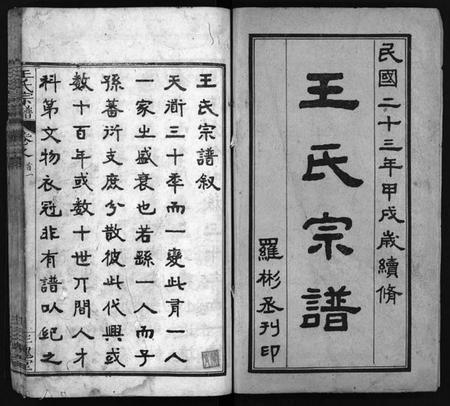 民國二十三年甲戌歲續脩
王氏宗譜
羅彬丞刊印
王氏宗譜叙
天衜三十季而一變此言一人
一家之盛衰也若繇一人而子
孫蕃衍支庶分散彼此代興或
數十百年或數十世丌間人才
科第文物衣冠非有譜㠯紀之
王氏宗譜
卷首